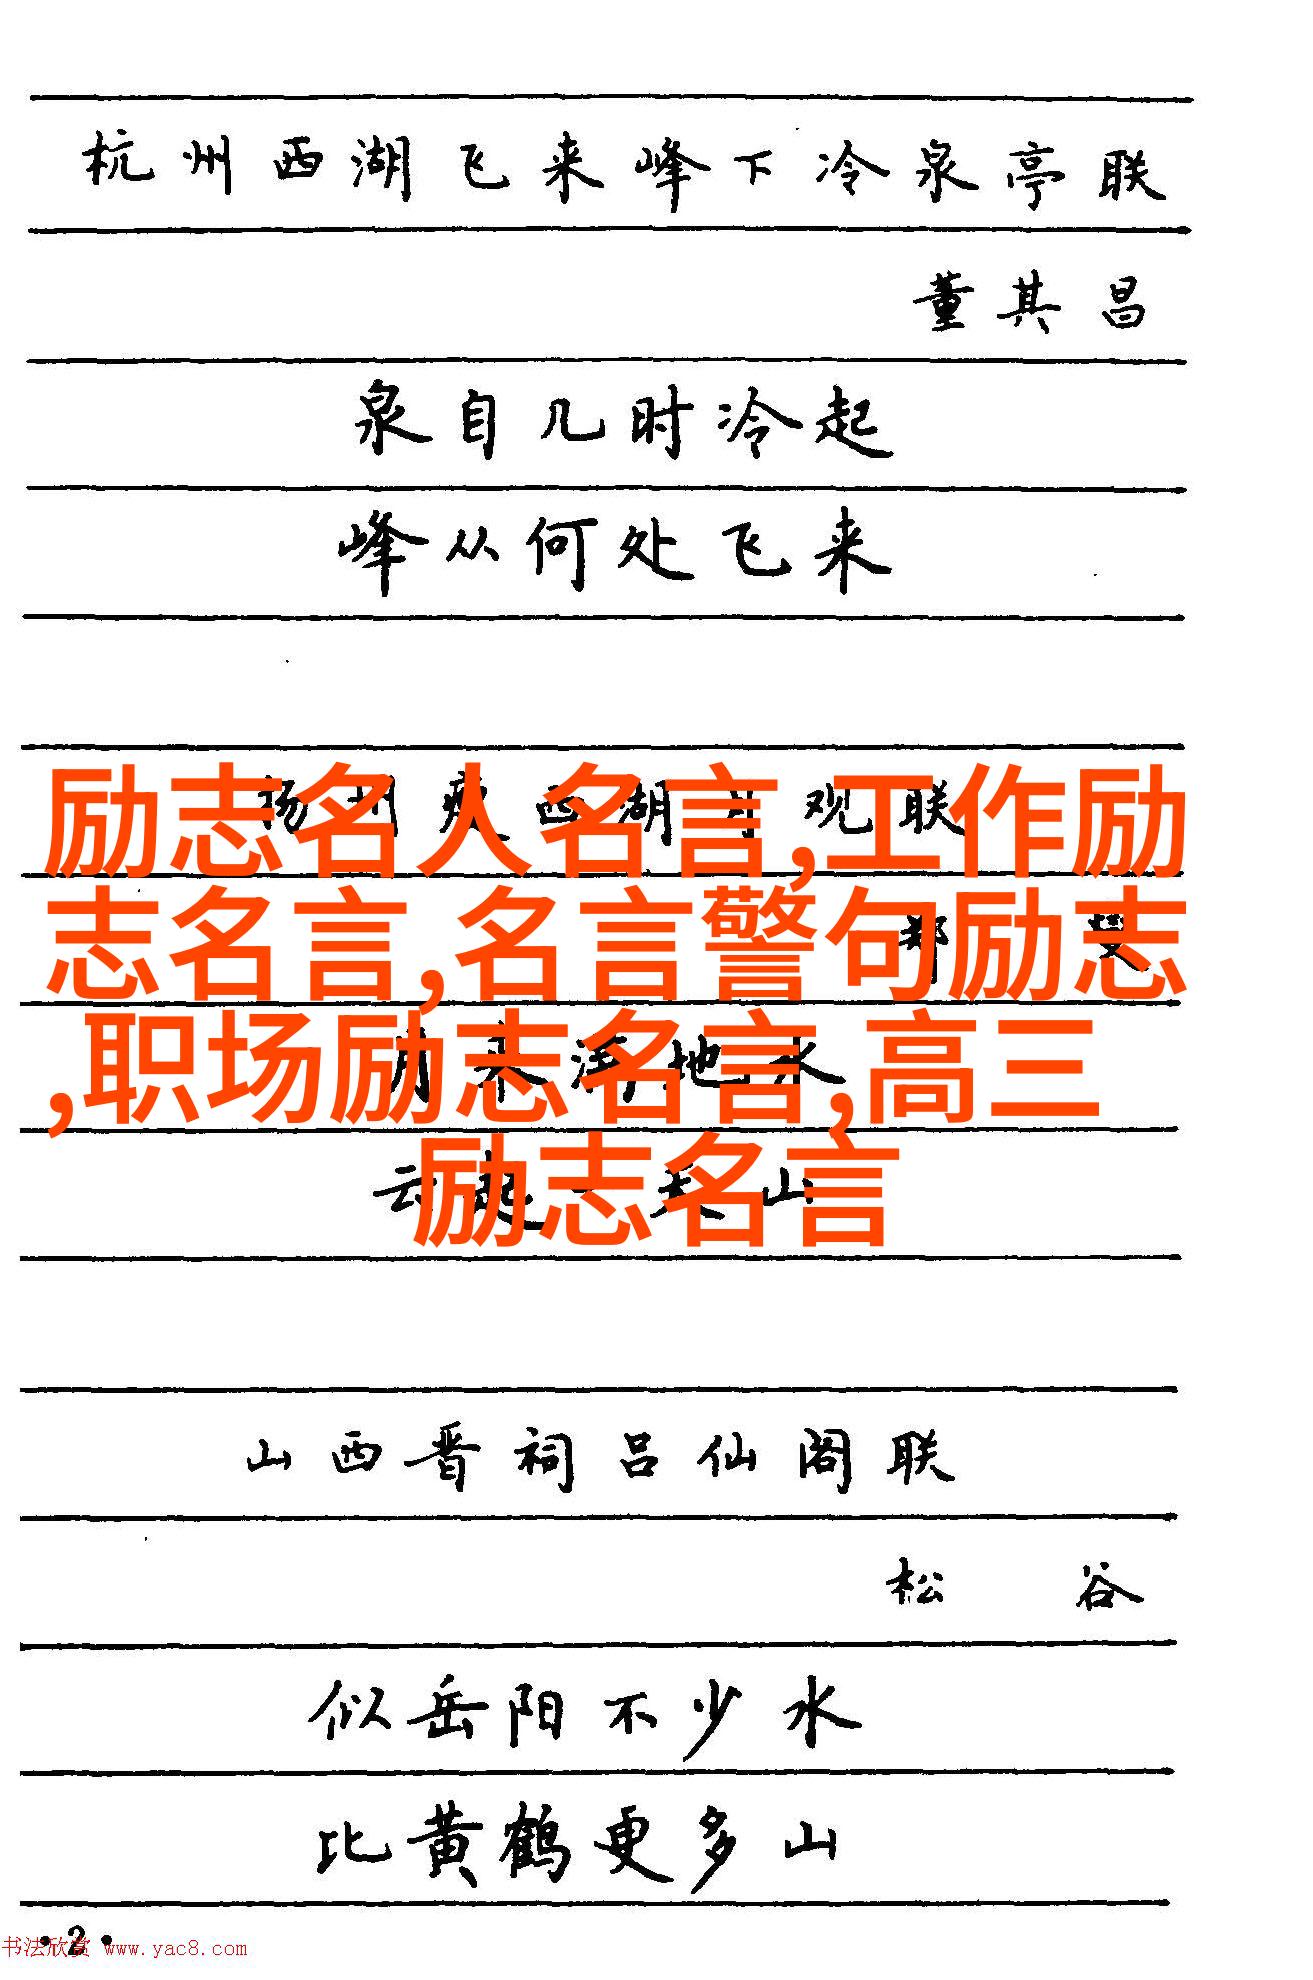 杭州西湖飞来峰下冷泉亭联
董其昌
泉自几时冷起
峰从何处飞来
扬州瘦西湖月观联
励志名人名言,工作励
志名言,名言警句励志
,职场励志名言,高三
励志名言
郑燮
月来满地水
云起一天山
山西晋祠吕仙阁联
松谷
似岳阳不少水
比黄鹤更多山
·2·
书法欣赏 www.yac8.com